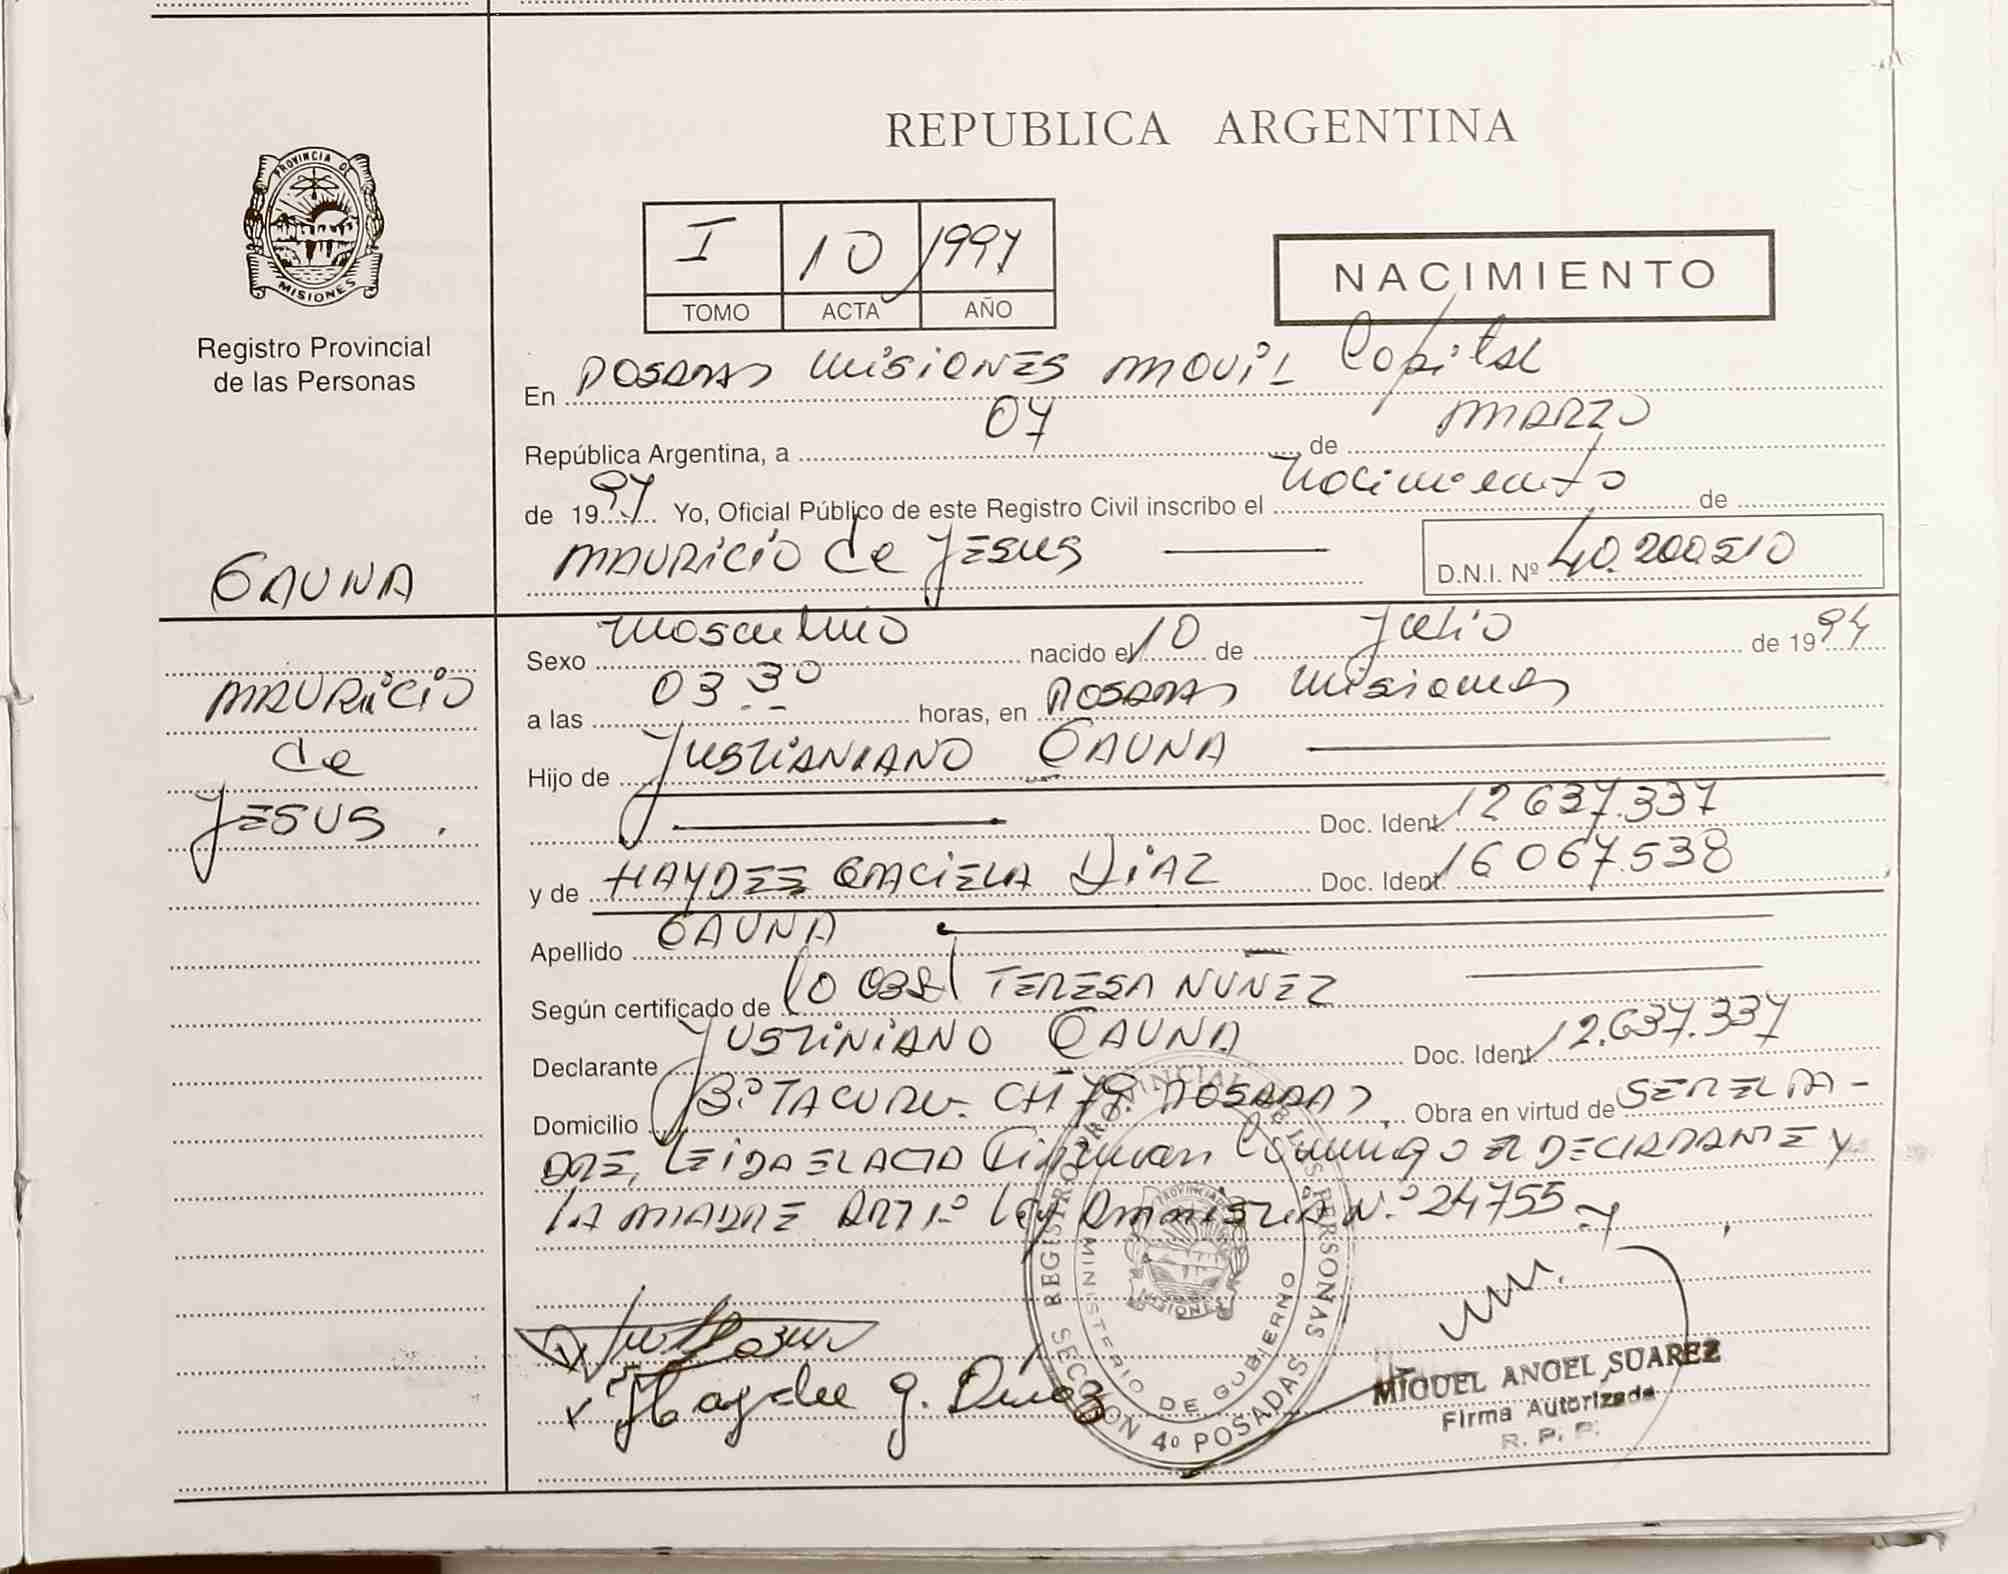 REPUBLICA ARGENTINA
PROVINCIA DE
MISIONES
Registro Provincial
de las Personas
I 10 1997
TOMO ACTA AÑO
NACIMIENTO
En POSADAS MISIONES MOVIL Capital
República Argentina, a 07 de MARZO
de 1997 Yo, Oficial Público de este Registro Civil inscribo el nacimiento de
MAURICIO de JESUS D.N.I. Nº 40.200510
GAUNA
MAURICIO
de
JESUS.
Sexo masculino nacido el 10 de Julio de 1994
a las 03 30 horas, en POSADAS Misiones
Hijo de JUSTIANIANO GAUNA
Doc. Ident. 12637.337
y de HAYDEE GRACIELA DIAZ Doc. Ident. 16067.538
Apellido GAUNA
Según certificado de TERESA NUÑEZ
Declarante JUSTINIANO GAUNA Doc. Ident. 12.637.337
Domicilio Bº TACURU. CH 79. POSADAS Obra en virtud de SER EL PA-
DRE, LEIDA EL ACTA Firman Conmigo EL DECLARANTE Y
LA MADRE ART 1º Ley Amnistia N.º 24755
REGISTRO PROVINCIAL DE LAS PERSONAS
MINISTERIO DE GOBIERNO
PROVINCIA
MISIONES
SECCION 4º POSADAS
Haydee g. Díaz
MIGUEL ANGEL SUAREZ
Firma Autorizada
R. P. P.